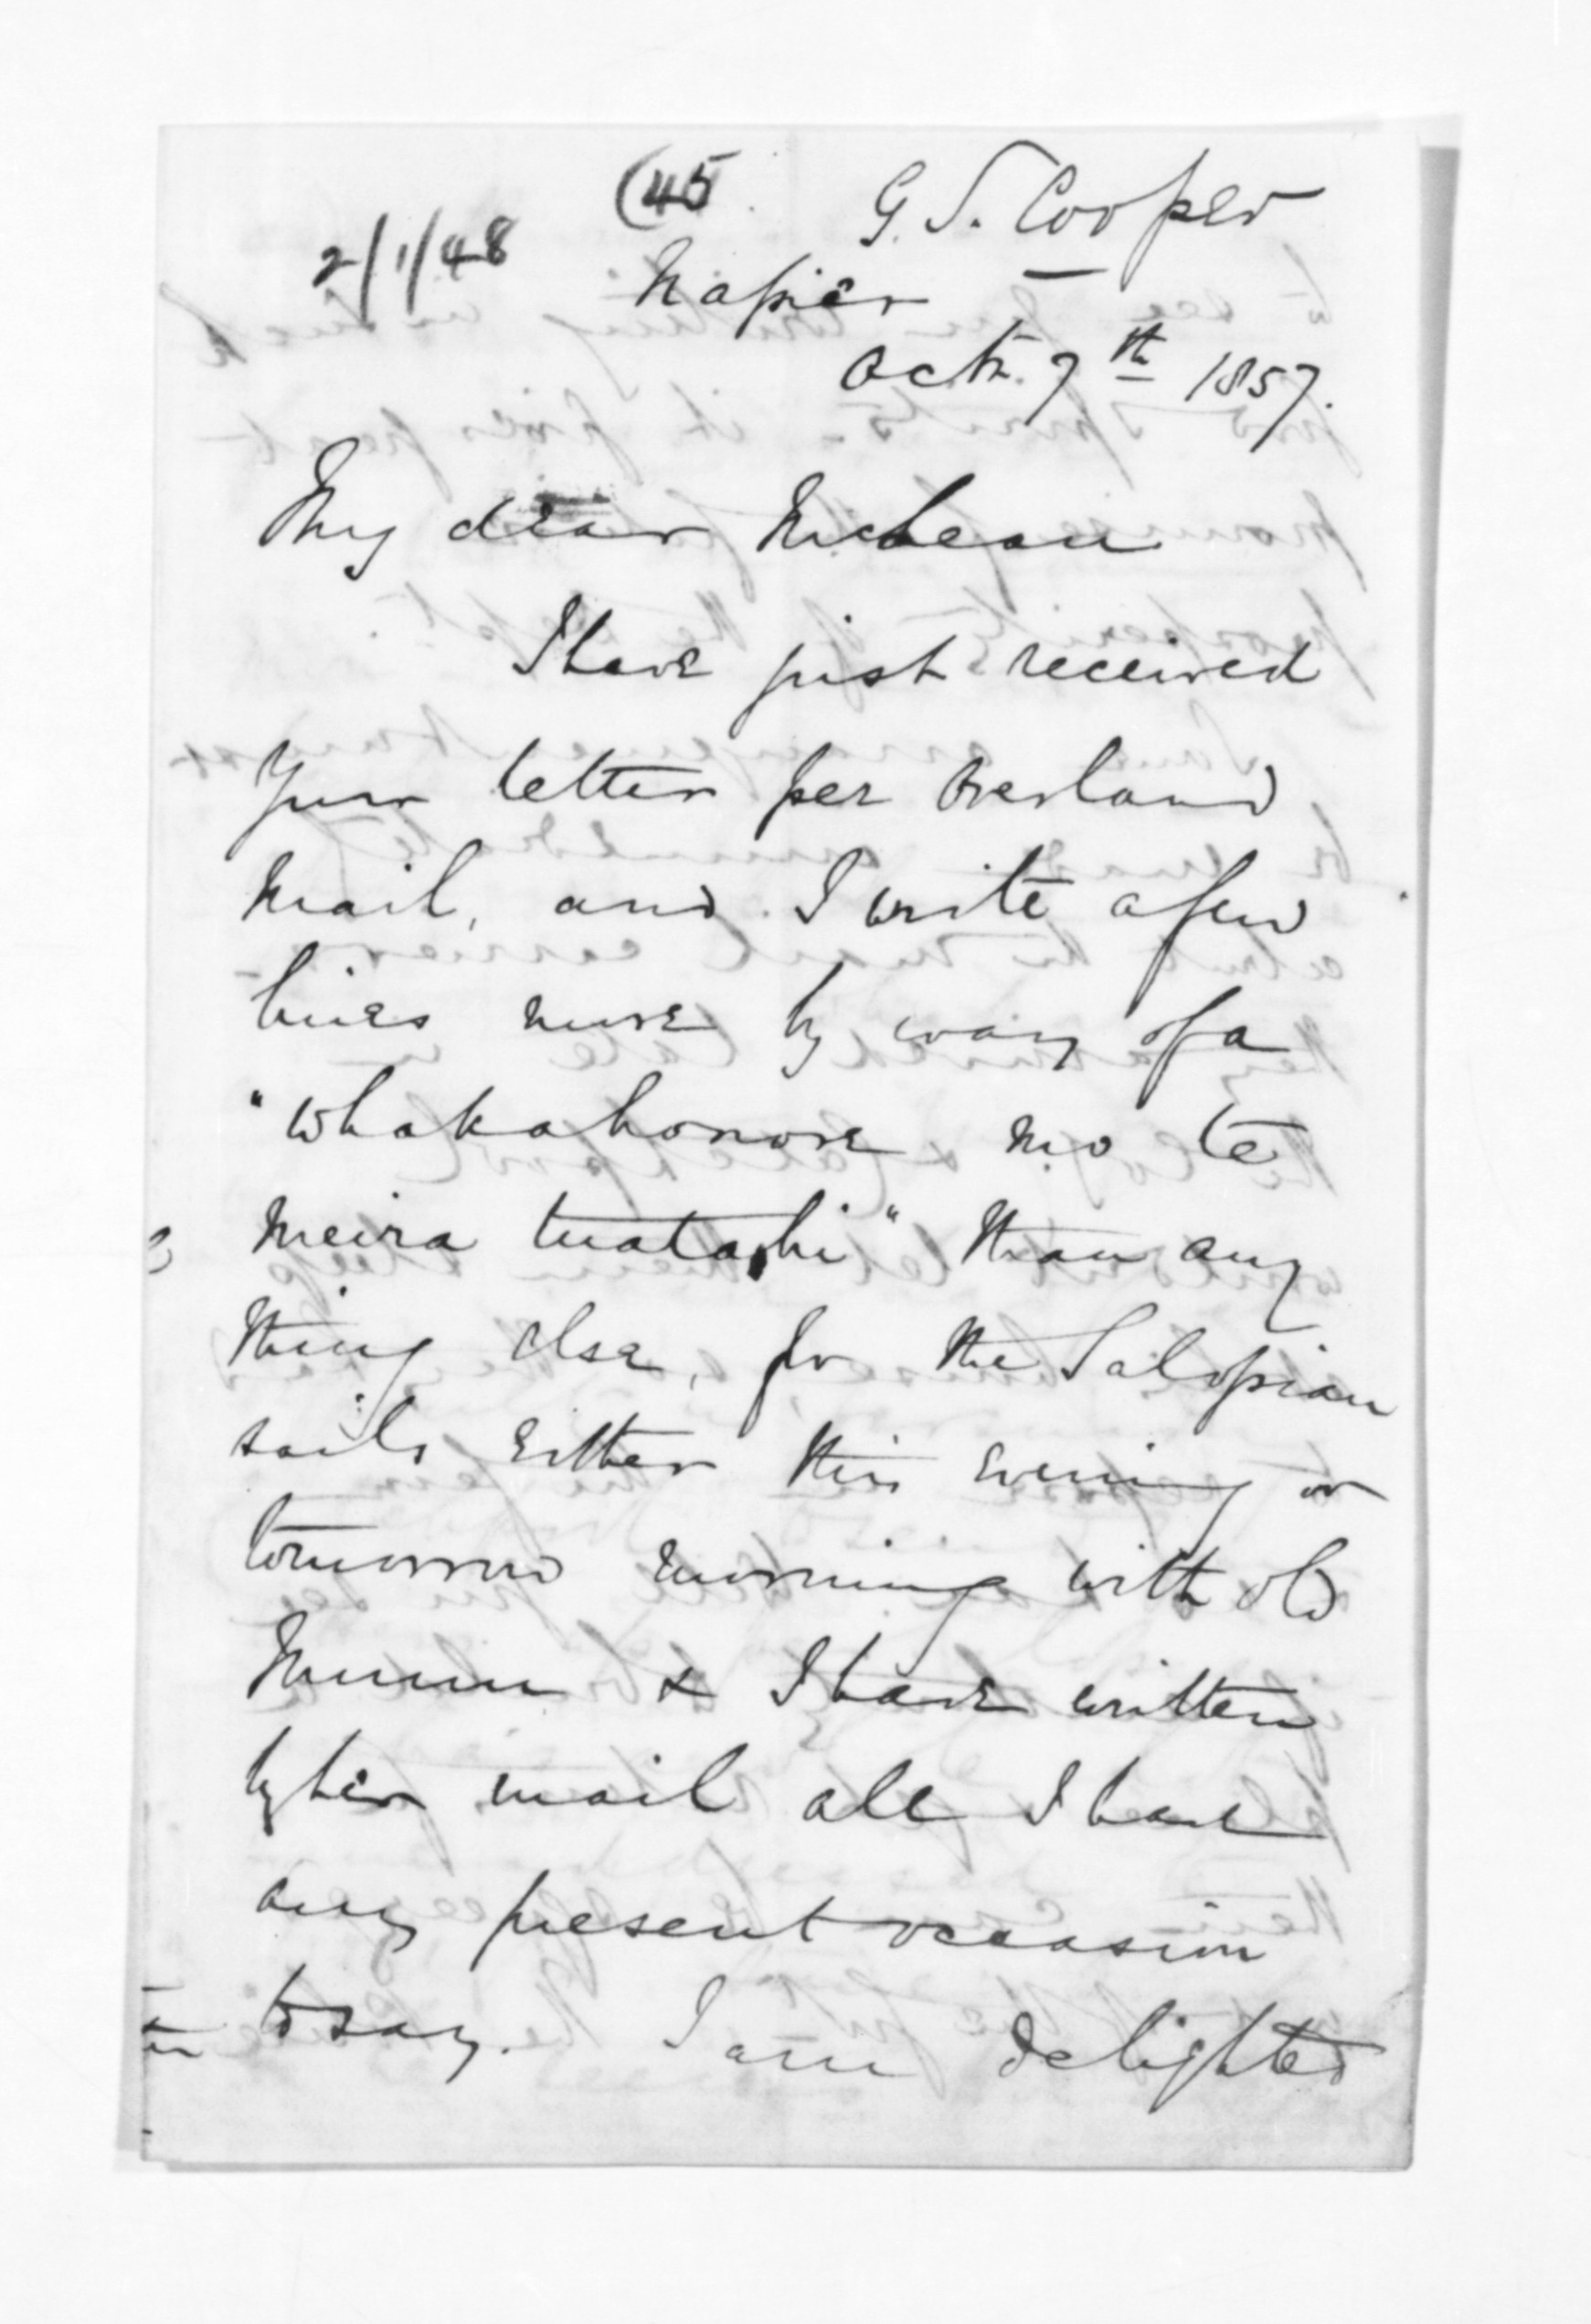 (45
G. S. Cooper
2/1/48
Napier
Octr. 7th 1857.
My dear McLean
I have just received
your letter per overland
mail, and I write a few
lines more by way of a
"whakahonore mo te
meira tuatahi" than any
thing else, for the Salopian
sails either this evening or
tomorrow morning with old
Munn & I have written
by her mail all I have
any present occasion
to say. I am delighted